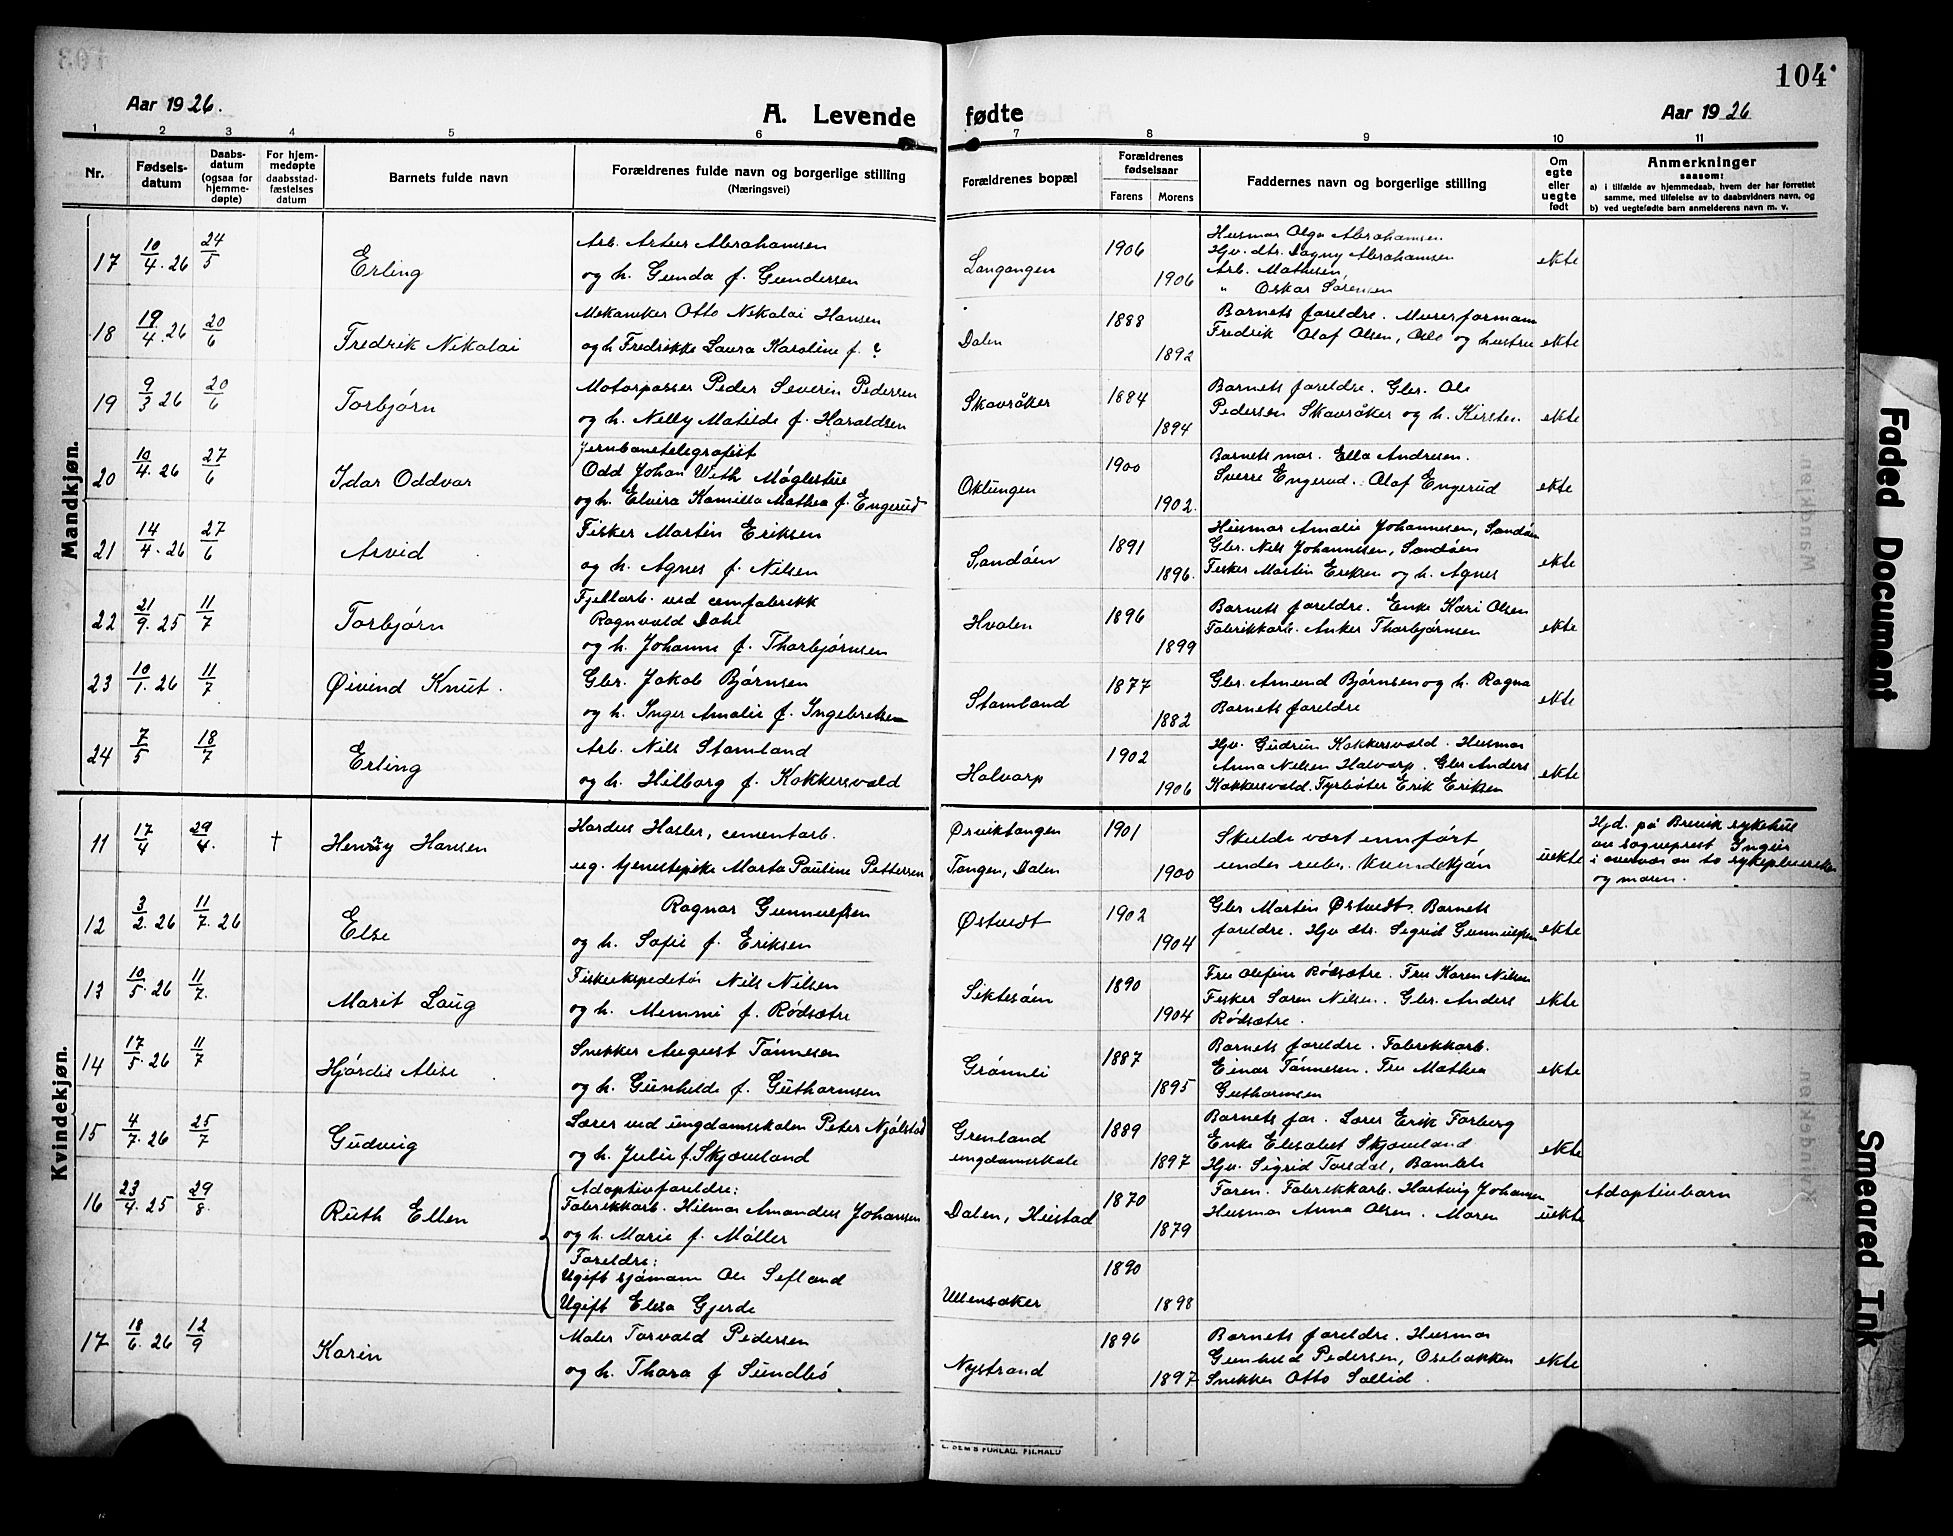 104
Aar 1926.
A. Levende fødte
Aar 1926
1 2 3 4 5 6 7 8 9 10 11
Nr.
Fødselsdatum
Daabsdatum (ogsaa for hjemmedøpte)
For hjemmedøpte daabsstadfæstelses datum
Barnets fulde navn
Forældrenes fulde navn og borgerlige stilling
(Næringsvei)
Forældrenes bopæl
Forældrenes fødselsaar
Farens Morens
Faddernes navn og borgerlige stilling
Om egte eller uegte født
Anmerkninger
saasom:
a) i tilfælde av hjemmedaab, hvem der har forrettet samme, med tilføielse av to daabsvidners navn, og
b) ved uegtefødte barn anmelderens navn m. v.
Mandkjøn.
17 10/4.26 24/5 Erling
Arb. Artur Abrahamsen
og h. Gunda f. Gundersen
Langangen 1906 1906
Husmor Olga Abrahamsen
Hjv. dtr. Dagny Abrahamsen
Arb. Mathisen,
" Oskar Sørensen
ekte
18 19/4.26 20/6 Fredrik Nikolai
Mekaniker Otto Nikolai Hansen
og h Fredrikke Laura Karoline f. ?
Dalen 1888 1892
Barnets foreldre. Murerformann
Fredrik Olaf Olsen, Oslo og hustru
ekte
19 9/3 26 20/6 Torbjørn
Motorpasser Peder Severin Pedersen
og h. Nelly Matilde f. Haraldsen
Skavråker 1884 1894
Barnets foreldre. Gbr. Ole
Pedersen Skavråker og h. Kirsten.
ekte
20 10/4.26 27/6 Idar Oddvar
Jernbanetelegrafist
Odd Johan Weth Møglestue
og h. Elvira Kamilla Mathea f. Engerud
Oklungen 1900 1902.
Barnets mor. Ella Andresen.
Sverre Engerud. Olaf Engerud
ekte
21 14/4.26 27/6 Arvid
Fisker Martin Eriksen
og h. Agnes f. Nilsen
Sandøen 1891 1896.
Husmor Amalie Johannesen, Sandøen
Gbr. Nils Johannesen, Sandøen
Fisker Martin Eriksen og h. Agnes
ekte
22 21/9.25 11/7 Torbjørn
Fjellarb. ved cemfabrikk
Ragnvald Dahl
og h. Johanne f. Thorbjørnsen
Hvalen 1896 1899
Barnets foreldre. Enke Kari Olsen
Fabrikkarb. Anker Thorbjørnsen
ekte
23 10/1.26 11/7 Øivind Knut.
Gbr. Jakob Bjørnsen
og h. Inger Amalie f. Ingebretsen
Stamland 1877 1882
Gbr. Amund Bjørnsen og h. Ragna
Barnets foreldre
ekte
24 7/5 18/7 Erling
Arb. Nils Stamland
og h. Hilborg f. Kokkersvold
Halvarp 1902 1906
Hjv. Gudrun Kokkersvold. Husmor
Anna Nilsen Halvarp. Gbr Anders
Kokkersvold. Fyrbøter Erik Eriksen
ekte
Kvindekjøn.
11 17/4 29/4. † Henry Hansen
Hardus Hasler, cementarb.
ug. tjenestepike Marta Pauline Pettersen
Ørviktangen
Tangen, Dalen 1901 1900
Skulde vært innført
under rubr. Kvindekjøn
uekte
Hjd. på Brevik sykehus
av sogneprest
i overvær av to sykepleiersker
og moren.
12 3/2.26 11/7.26 Else
Ragnar Gunnulfsen
og h. Sofie f. Eriksen
Østvedt 1902 1904
Gbr Martin Østvedt. Barnets
foreldre. Hjv dtr. Sigrid Gunnulfsen
ekte
13 10/5.26 11/7. Marit Laug
Fiskeekspeditør Nils Nilsen
og h. Memmi f. Rødsætre
Siktesøen 1890 1904
Fru Olefine Rødsætre. Fru Karen Nilsen
Fisker Søren Nilsen. Gbr. Anders
Rødsætre.
ekte
14 17/5.26 11/7 Hjørdis Alise
Snekker August Tønnesen
og h. Gunhilde f. Guthormsen
Grømli 1887 1895
Barnets foreldre. Fabrikkarb.
Einar Tønnesen. Fru Mathea
Guthormsen
ekte
15 4/7.26 25/7 Gudveig
Lærer ved ungdomsskolen Peter Njølstad
og h. Julie f. Skjæveland
Grenland
ungdomsskole 1889 1897
Barnets far. Lærer Erik Forberg
Enke Elisabet Skjæveland
Hjv. Sigrid Toredal, Bamble
ekte
16 23/4.25 29/8. Ruth Ellen
Adoptivforeldre:
Fabrikkarb. Hilmar Amandus Johansen
og h. Marie f. Møller
Foreldre:
Ugift sjømann Ole Sefland
Ugift Elisa Gjerde
Dalen, Heistad 1870 1879
Ullensaker 1890 1898
Faren. Fabrikkarb. Hartvig Johansen
Husmor Anna Olsen. Moren
uekte
Adoptivbarn
17 18/6.26 12/9 Karin
Maler Torvald Pedersen
og h. Thora f Sundbø
Nystrand 1896 1897
Barnets foreldre. Husmor
Gunhild Pedersen, Osebakken
Snekker Otto Sollid.
ekte
Faded Document
Smeared Ink